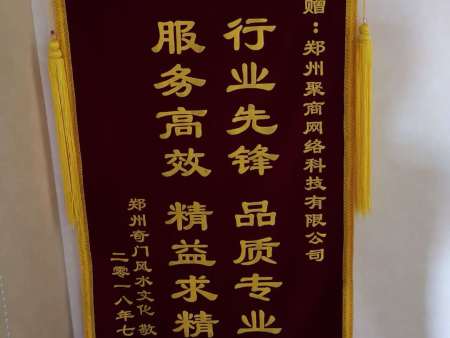 赠：郑州聚商网络科技有限公司
行业先锋 品质专业
服务高效 精益求精
郑州奇门风水文化 敬
二零一八年七